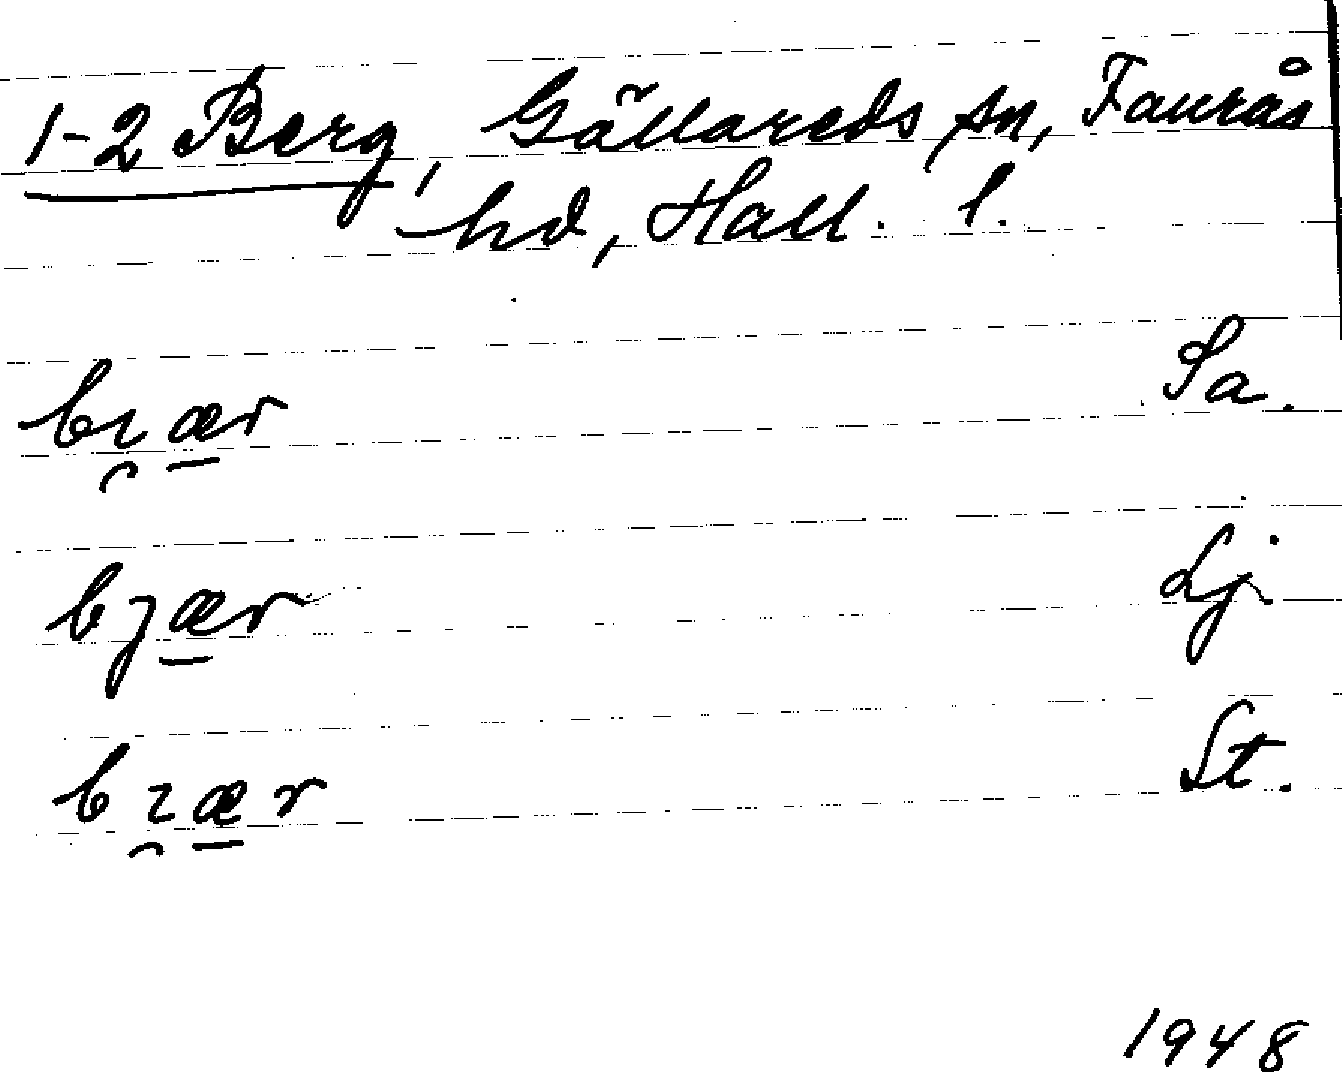 1-2 Berg, Gällareds sn, Faurås
hd, Hall. l.
bı̯æ̲r Sa.
bjæ̲r Lj.
bı̯æ̲r St.
1948